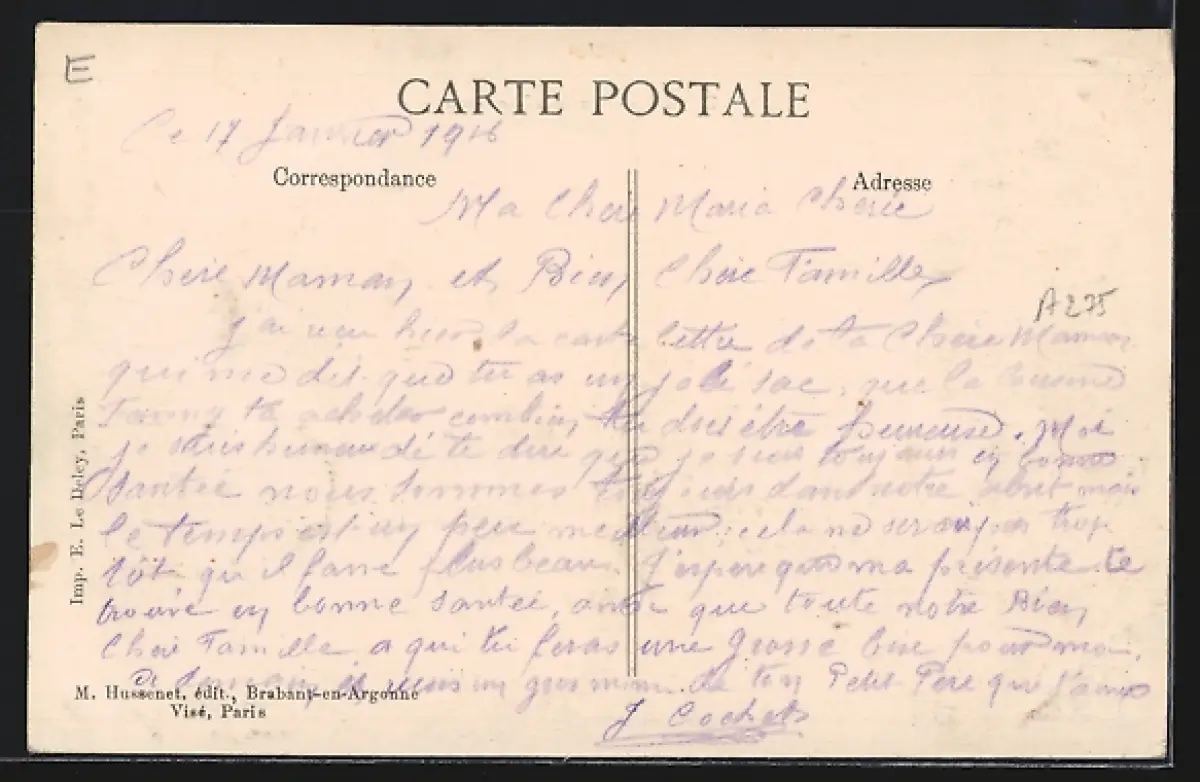 E
CARTE POSTALE
Ce 17 Janvier 1916
Correspondance
Adresse
Ma Chere Maria Cherie
Chere Maman et Bien Chere Famille
J'ai recu hier la carte lettre de ta Chere Maman
A275
qui me dit que tu as un joli sac, que la cousine
Fanny t'a acheter combien tu dois être heureuse. Moi
je suis de te dire que je suis toujours en bonne
Santée nous sommes toujours dans notre mais
le temps est un peu meilleur, cela ne serai pas trop
tôt qu'il fasse plus beau. J'espere que ma présente te
trouve en bonne santée, ainsi que toute notre Bien
Chere Famille a qui tu feras une grosse bise pour moi.
un gros mimi de ton Petit Pere qui t'aime
J Cochet
M. Hussenet, édit., Brabant-en-Argonne
Visé, Paris
Imp. E. Le Deley, Paris